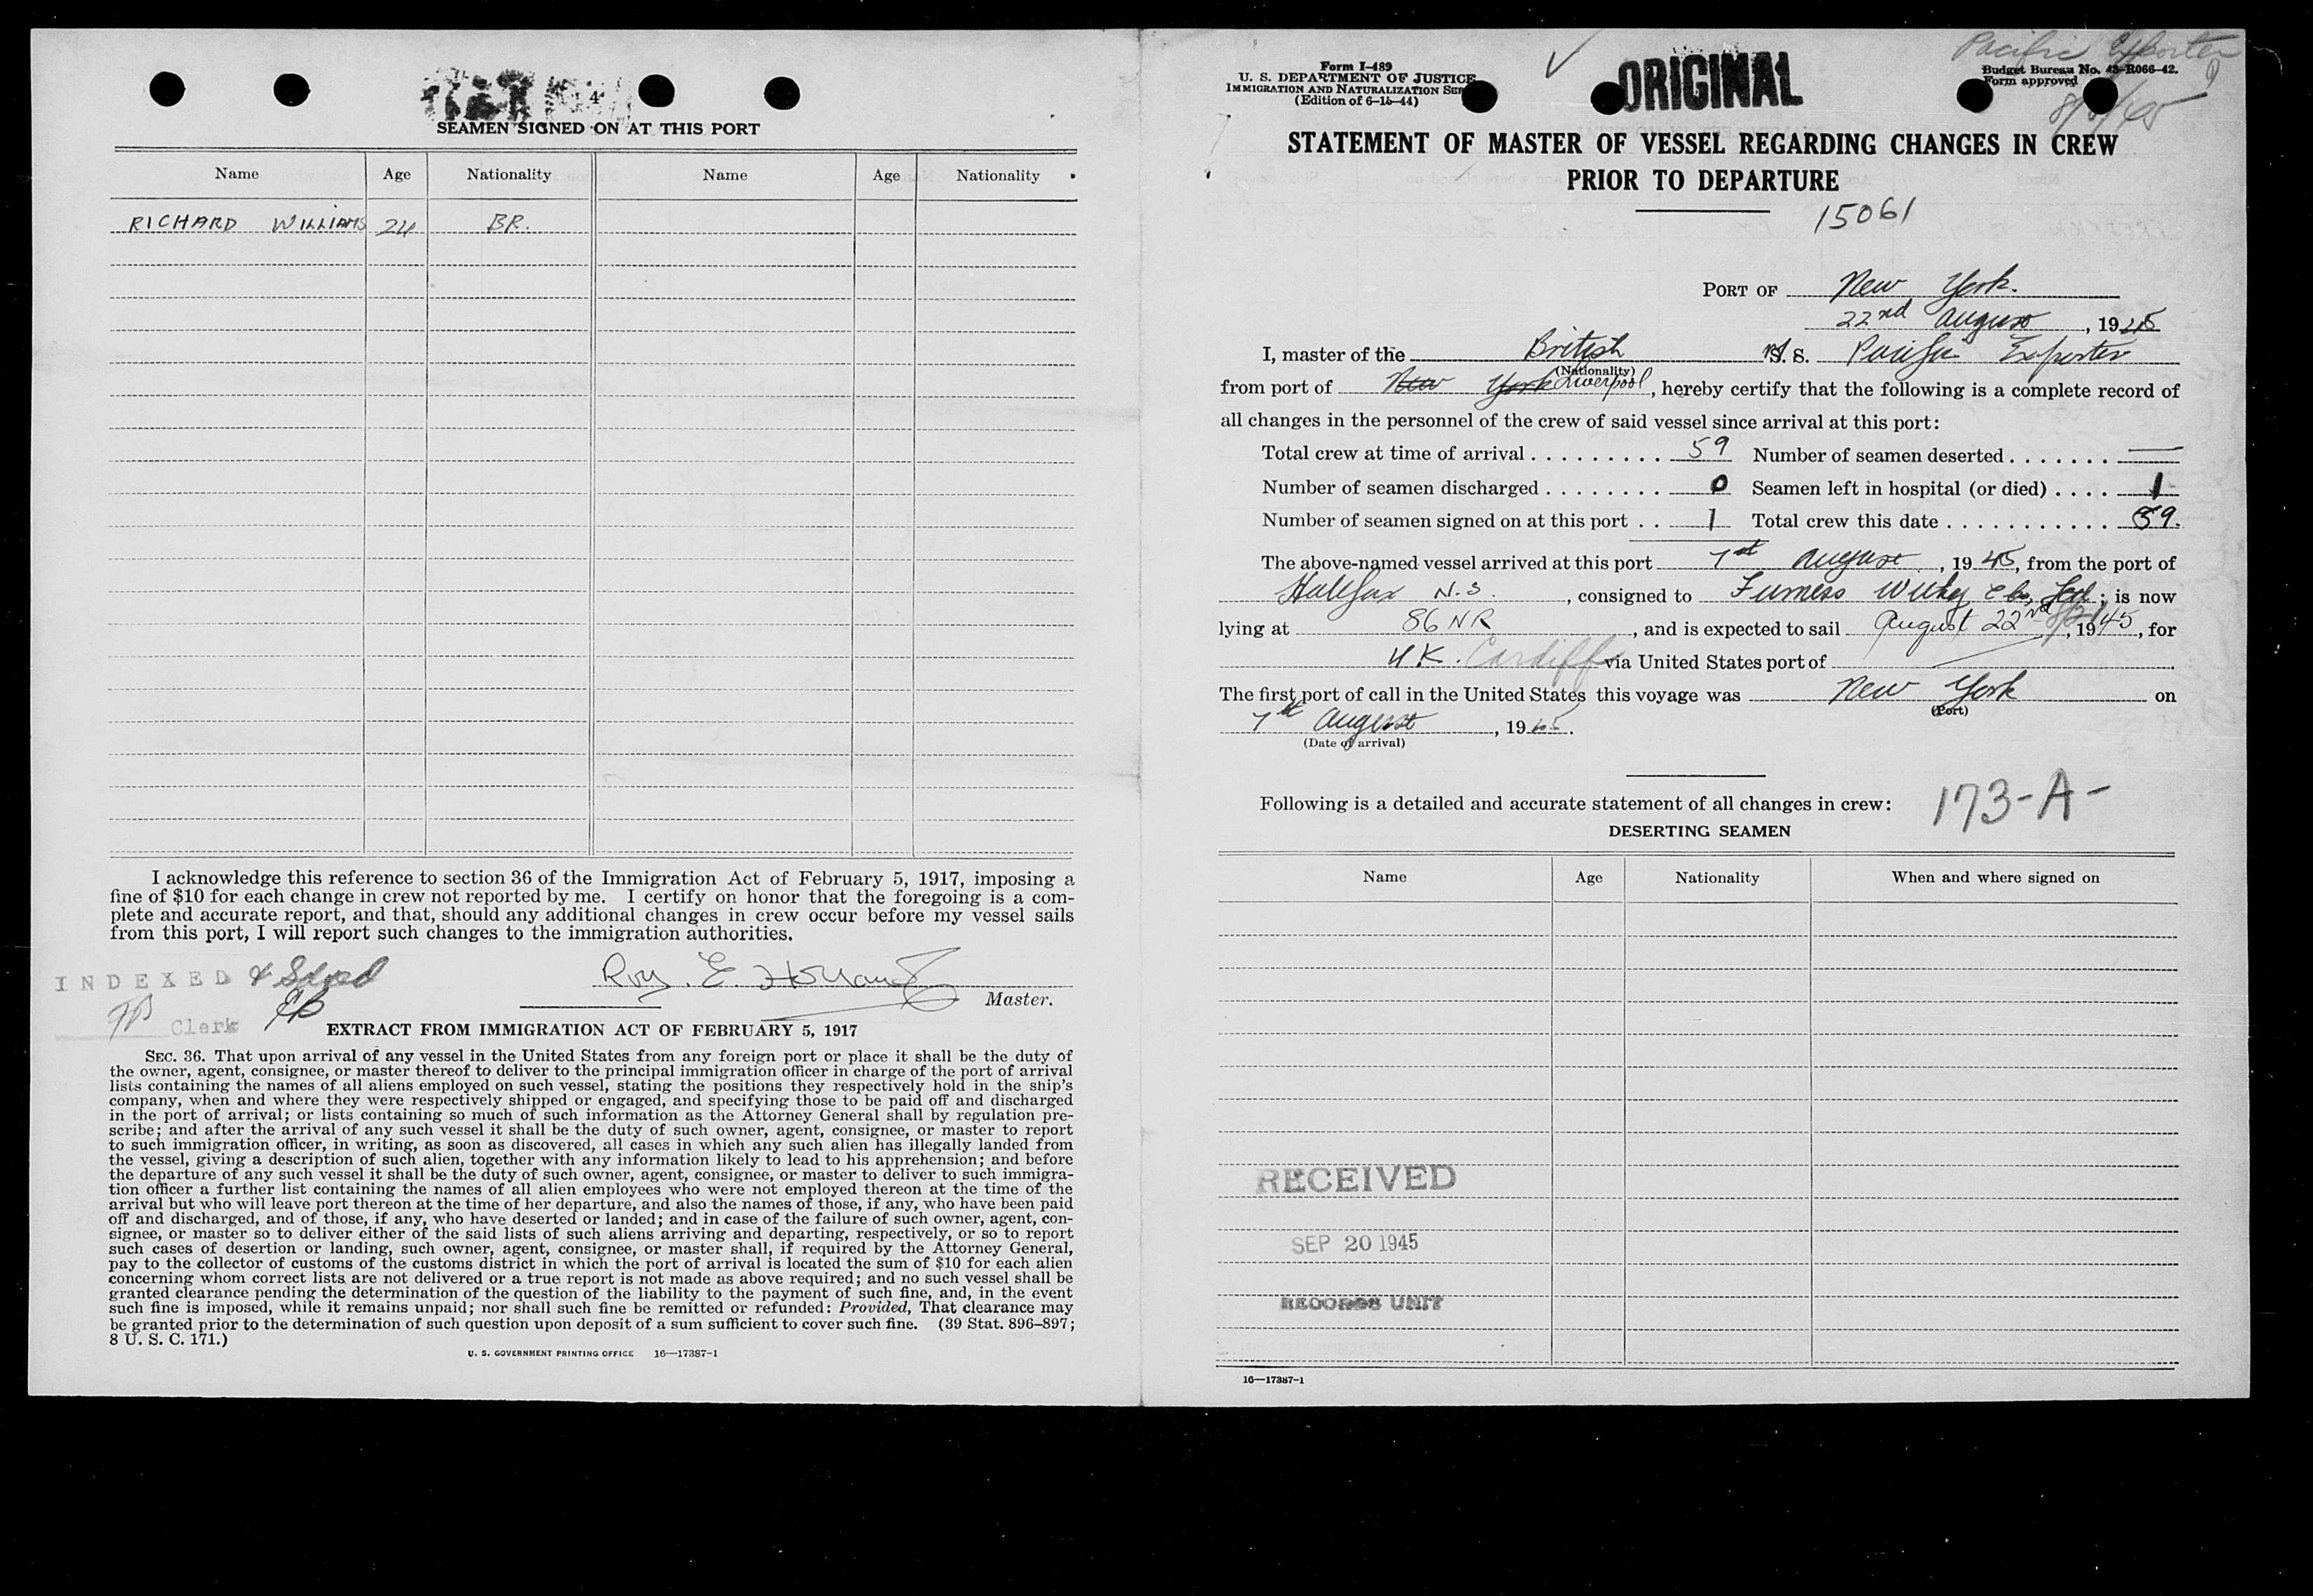 SEAMEN SIGNED ON AT THIS PORT
Name Age Nationality Name Age Nationality
RICHARD WILLIAMS 24 BR.
I acknowledge this reference to section 36 of the Immigration Act of February 5, 1917, imposing a
fine of $10 for each change in crew not reported by me. I certify on honor that the foregoing is a com-
plete and accurate report, and that, should any additional changes in crew occur before my vessel sails
from this port, I will report such changes to the immigration authorities.
INDEXED &
Roy. E. Holland
Master.
Clerk
EXTRACT FROM IMMIGRATION ACT OF FEBRUARY 5, 1917
SEC. 36. That upon arrival of any vessel in the United States from any foreign port or place it shall be the duty of
the owner, agent, consignee, or master thereof to deliver to the principal immigration officer in charge of the port of arrival
lists containing the names of all aliens employed on such vessel, stating the positions they respectively hold in the ship's
company, when and where they were respectively shipped or engaged, and specifying those to be paid off and discharged
in the port of arrival; or lists containing so much of such information as the Attorney General shall by regulation pre-
scribe; and after the arrival of any such vessel it shall be the duty of such owner, agent, consignee, or master to report
to such immigration officer, in writing, as soon as discovered, all cases in which any such alien has illegally landed from
the vessel, giving a description of such alien, together with any information likely to lead to his apprehension; and before
the departure of any such vessel it shall be the duty of such owner, agent, consignee, or master to deliver to such immigra-
tion officer a further list containing the names of all alien employees who were not employed thereon at the time of the
arrival but who will leave port thereon at the time of her departure, and also the names of those, if any, who have been paid
off and discharged, and of those, if any, who have deserted or landed; and in case of the failure of such owner, agent, con-
signee, or master so to deliver either of the said lists of such aliens arriving and departing, respectively, or so to report
such cases of desertion or landing, such owner, agent, consignee, or master shall, if required by the Attorney General,
pay to the collector of customs of the customs district in which the port of arrival is located the sum of $10 for each alien
concerning whom correct lists are not delivered or a true report is not made as above required; and no such vessel shall be
granted clearance pending the determination of the question of the liability to the payment of such fine, and, in the event
such fine is imposed, while it remains unpaid; nor shall such fine be remitted or refunded: Provided, That clearance may
be granted prior to the determination of such question upon deposit of a sum sufficient to cover such fine. (39 Stat. 896–897;
8 U. S. C. 171.)
U. S. GOVERNMENT PRINTING OFFICE 16—17387-1
Pacific Exporter
Form I-489
U. S. DEPARTMENT OF JUSTICE
IMMIGRATION AND NATURALIZATION SER
(Edition of 6-15-44)
ORIGINAL
Budget Bureau No. 43-R066-42.
Form approved
STATEMENT OF MASTER OF VESSEL REGARDING CHANGES IN CREW
PRIOR TO DEPARTURE
15061
PORT OF New York.
22nd August, 1945
I, master of the British M. S. Pacific Exporter
(Nationality)
from port of New York Liverpool, hereby certify that the following is a complete record of
all changes in the personnel of the crew of said vessel since arrival at this port:
Total crew at time of arrival . . . . . . . . . . 59 Number of seamen deserted . . . . . . . —
Number of seamen discharged . . . . . . . . 0 Seamen left in hospital (or died) . . . . 1
Number of seamen signed on at this port . . 1 Total crew this date . . . . . . . . . . . . 59.
The above-named vessel arrived at this port August, 1945, from the port of
Halifax N.S., consigned to Furness Withy & Co, Ltd; is now
lying at 86 NR, and is expected to sail August 22nd, 1945, for
UK. Cardiff via United States port of —
The first port of call in the United States this voyage was New York on
(Port)
August, 1945.
(Date of arrival)
Following is a detailed and accurate statement of all changes in crew: 173-A-
DESERTING SEAMEN
Name Age Nationality When and where signed on
RECEIVED
SEP 20 1945
RECORDS UNIT
16—17387-1